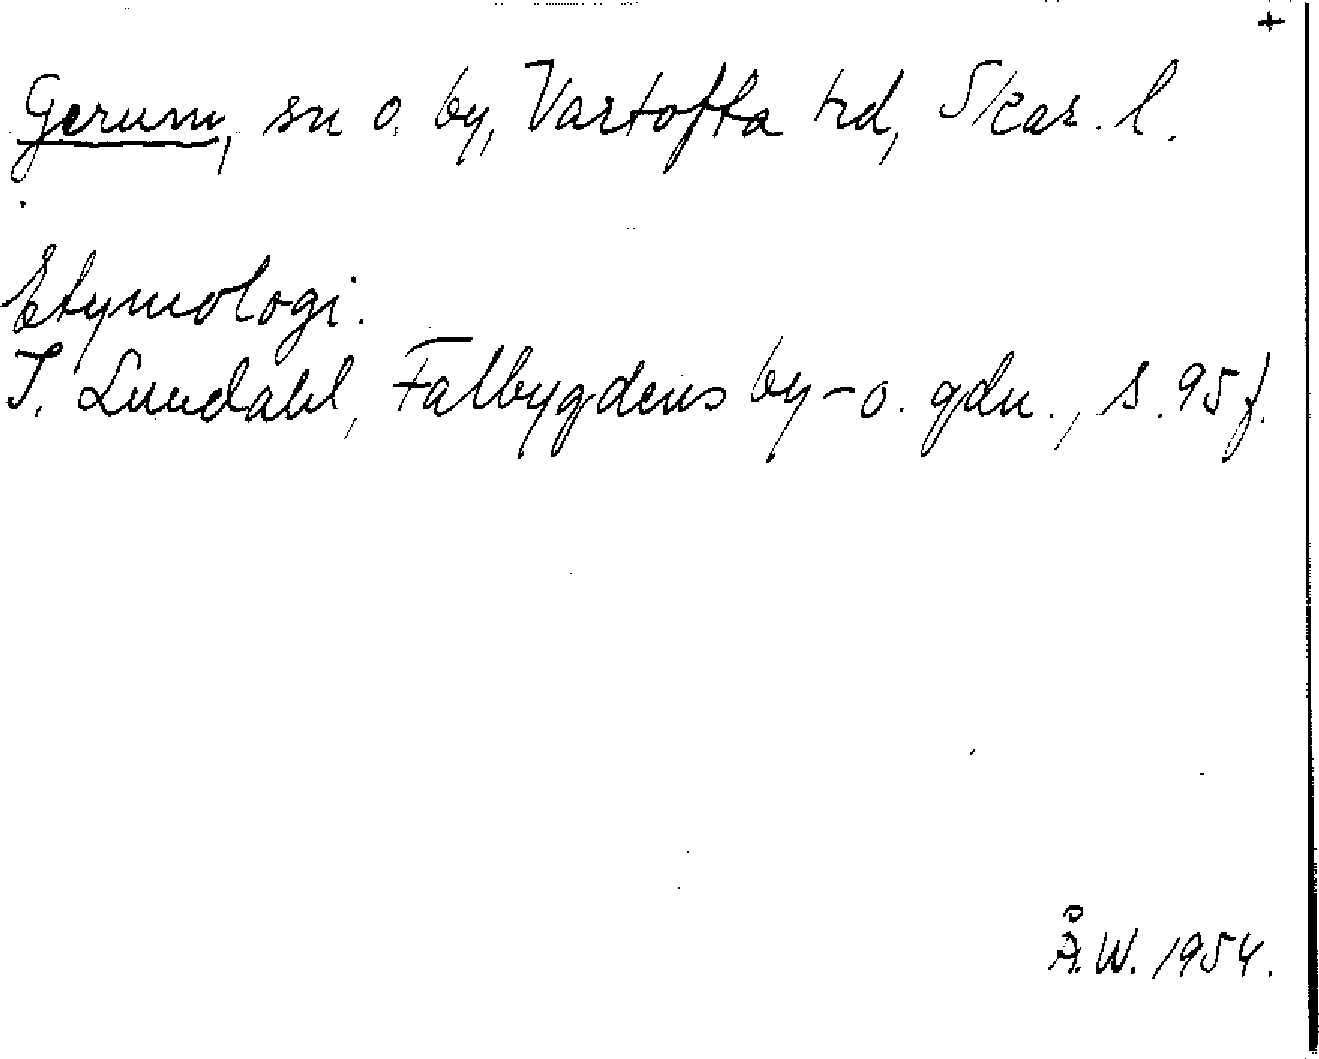 +
Gerum, sn o. by, Vartofta hd, Skar. l.
Etymologi.
I. Lundahl, Falbygdens by- o. gdn., s. 95 f.
Å.W. 1954.